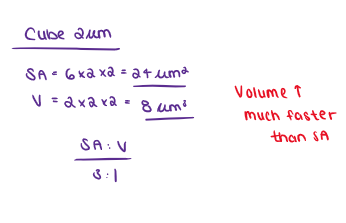 Cube 2um
SA = 6x2x2 = 24 um²
V = 2x2x2 = 8 um³
Volume ↑
much faster
than SA
SA : V
3 : 1